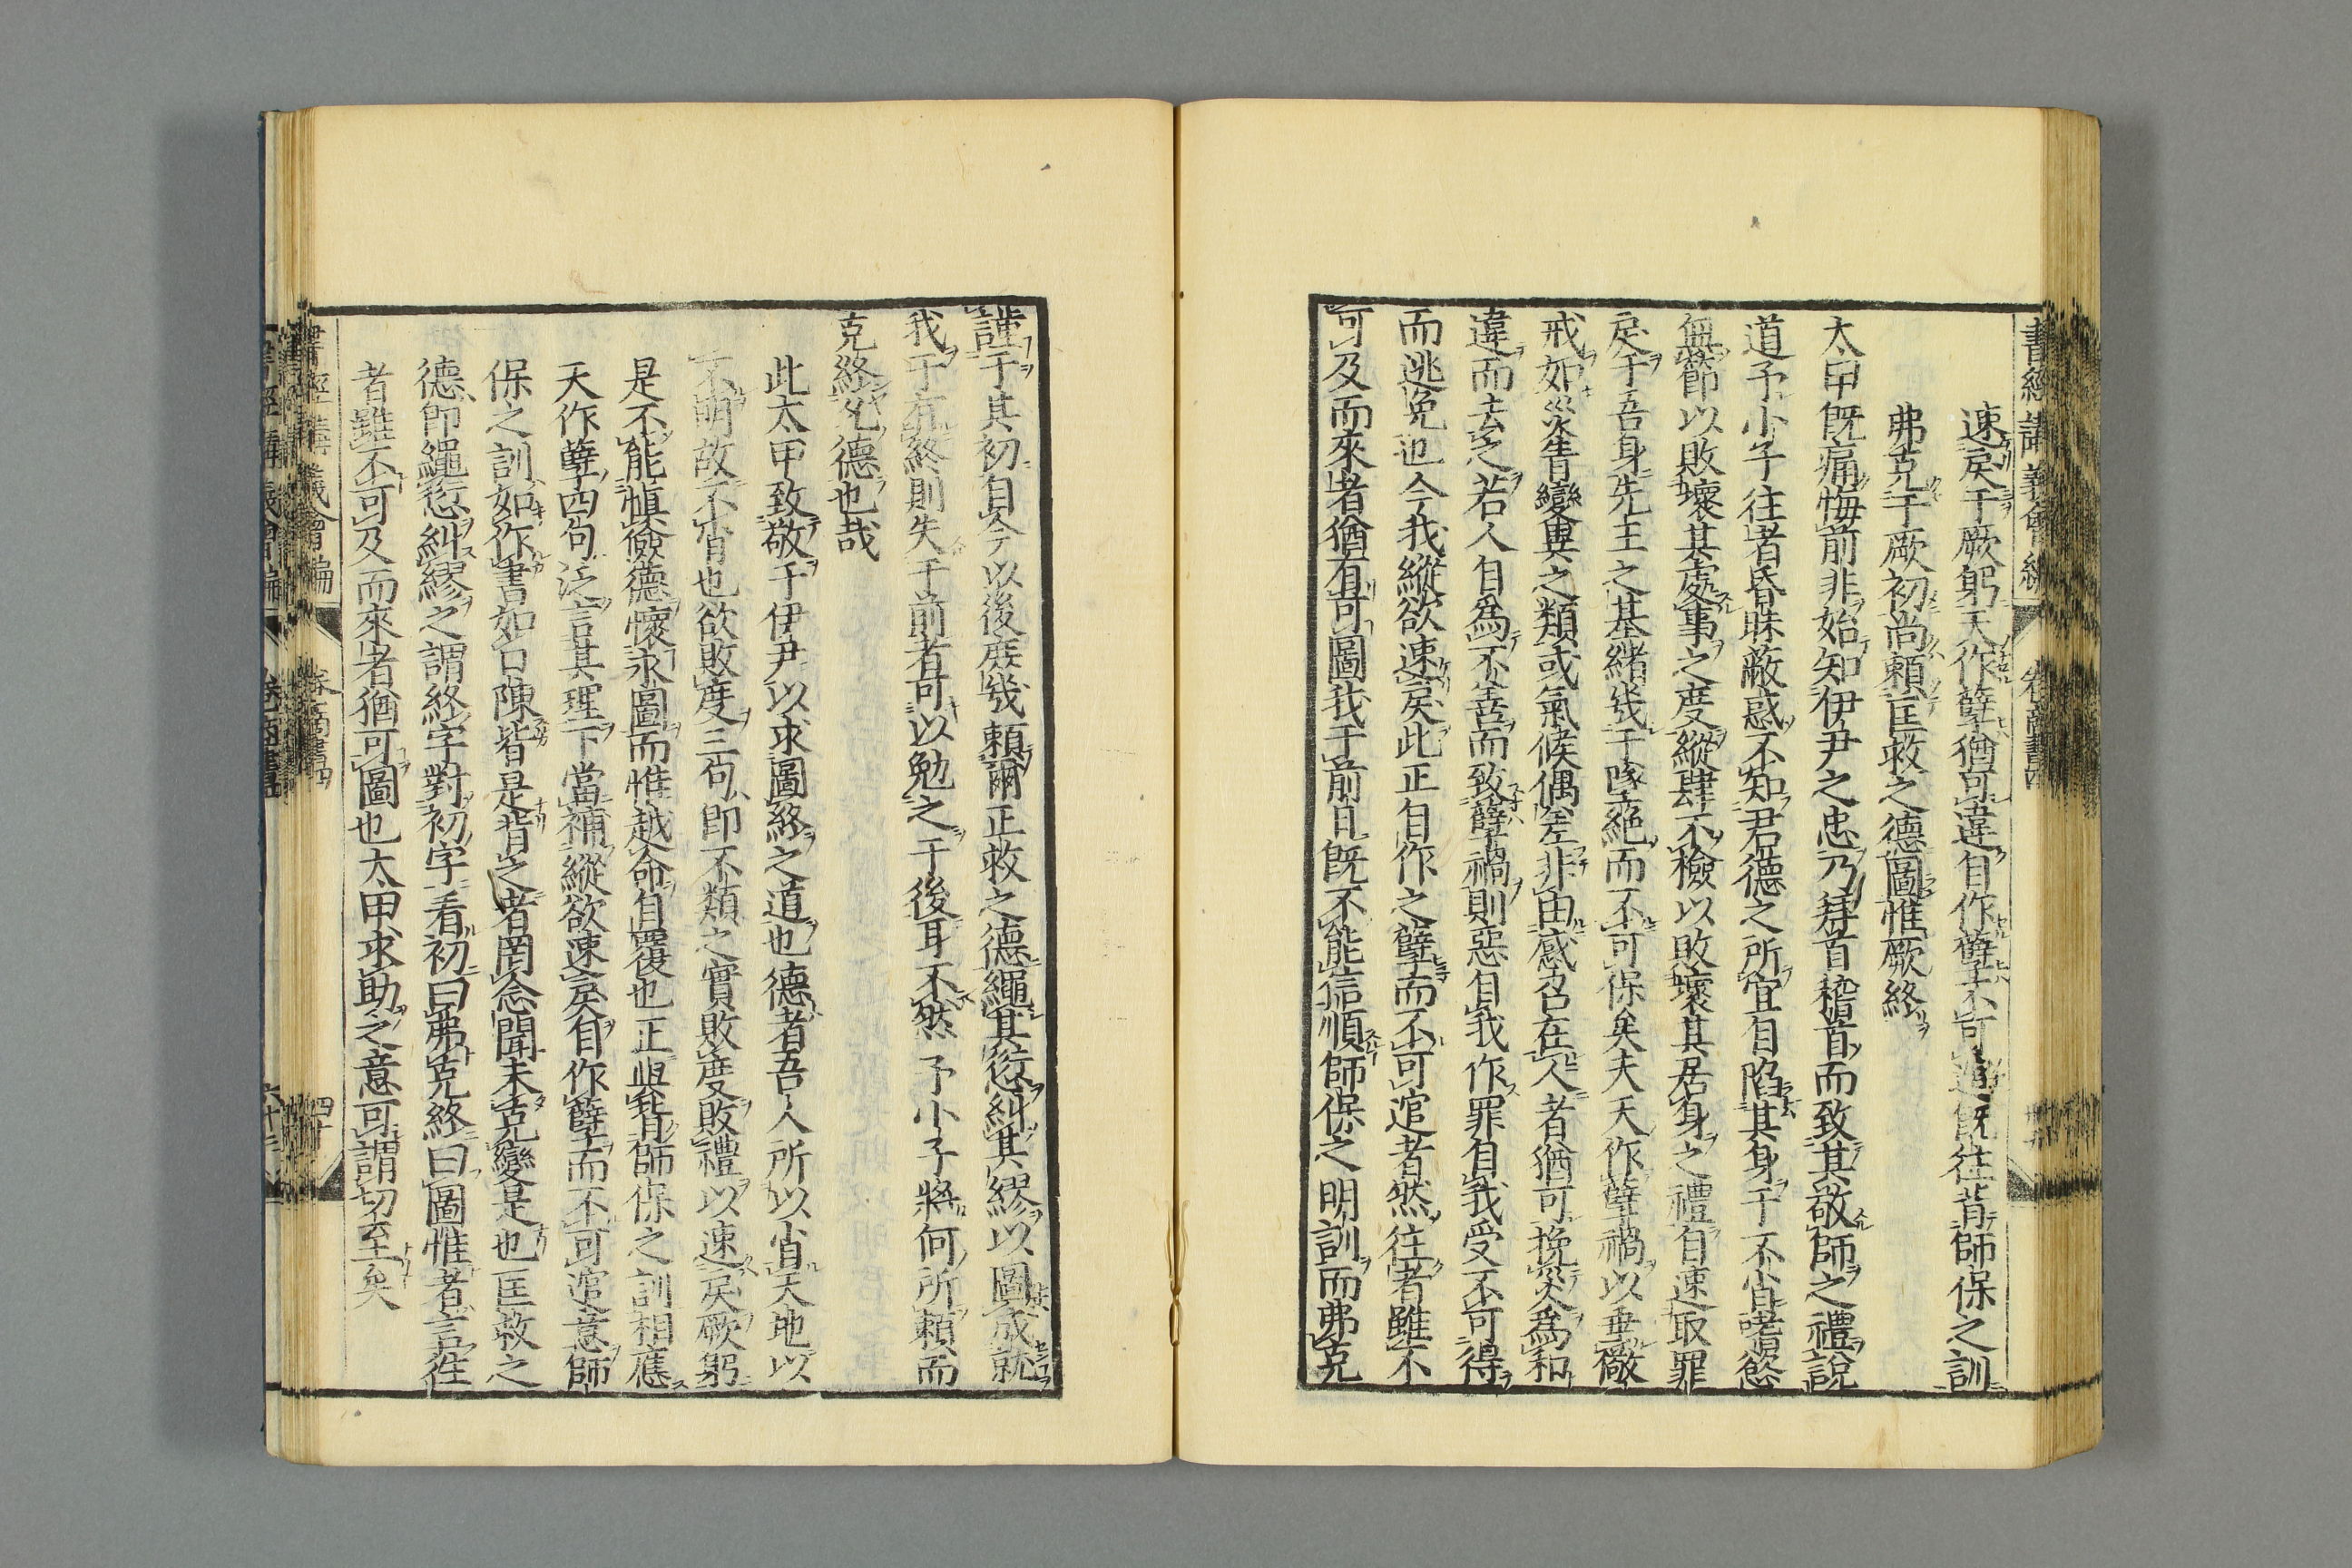 書經講義會編
速戾于厥躬天作孽猶可違自作孽不可逭既往背師保之訓
弗克于厥初尚賴匡救之德圖惟厥終
太甲既痛悔前非始知伊尹之忠乃拜首稽首而致其敬師之禮說
道予小子往者昏昧蔽惑不知君德之所宜自陷其身于不肖嗜慾
無節以敗壞其處事之度縱肆不檢以敗壞其居身之禮自速取罪
戾于吾身先王之基緒幾于隊絕而不可保矣夫天作孽禍以垂儆
戒如災眚變異之類或氣候偶差非由感召在人者猶可挽災爲和
違而去之若人自爲不善而致孽禍則惡自我作罪自我受不可得
而逃免也今我縱欲速戾此正自作之孽而不可逭者然往者雖不
可及而來者猶有可圖我于前日既不能信順師保之明訓而弗克
謹于其初自今以後庶幾賴爾正救之德繩其愆糾其繆以圖成就
我于有終則失于前者可以勉之于後耳不然予小子將何所賴而
克終允德也哉
此太甲致敬于伊尹以求圖終之道也德者吾人所以肖天地以
不明故不肖也欲敗度三句即不類之實敗度敗禮以速戾厥躬
是不能愼儉德懷永圖而惟越命自覆也正與背師保之訓相應
天作孽四句泛言其理下當補縱欲速戾自作孽而不可逭意師
保之訓如作書如口陳皆是背之者罔念聞未克變是也匡救之
德即繩愆糾繆之謂終字對初字看初曰弗克終曰圖惟者言往
者雖不可及而來者猶可圖也太甲求助之意可謂切至矣
書經講義會編